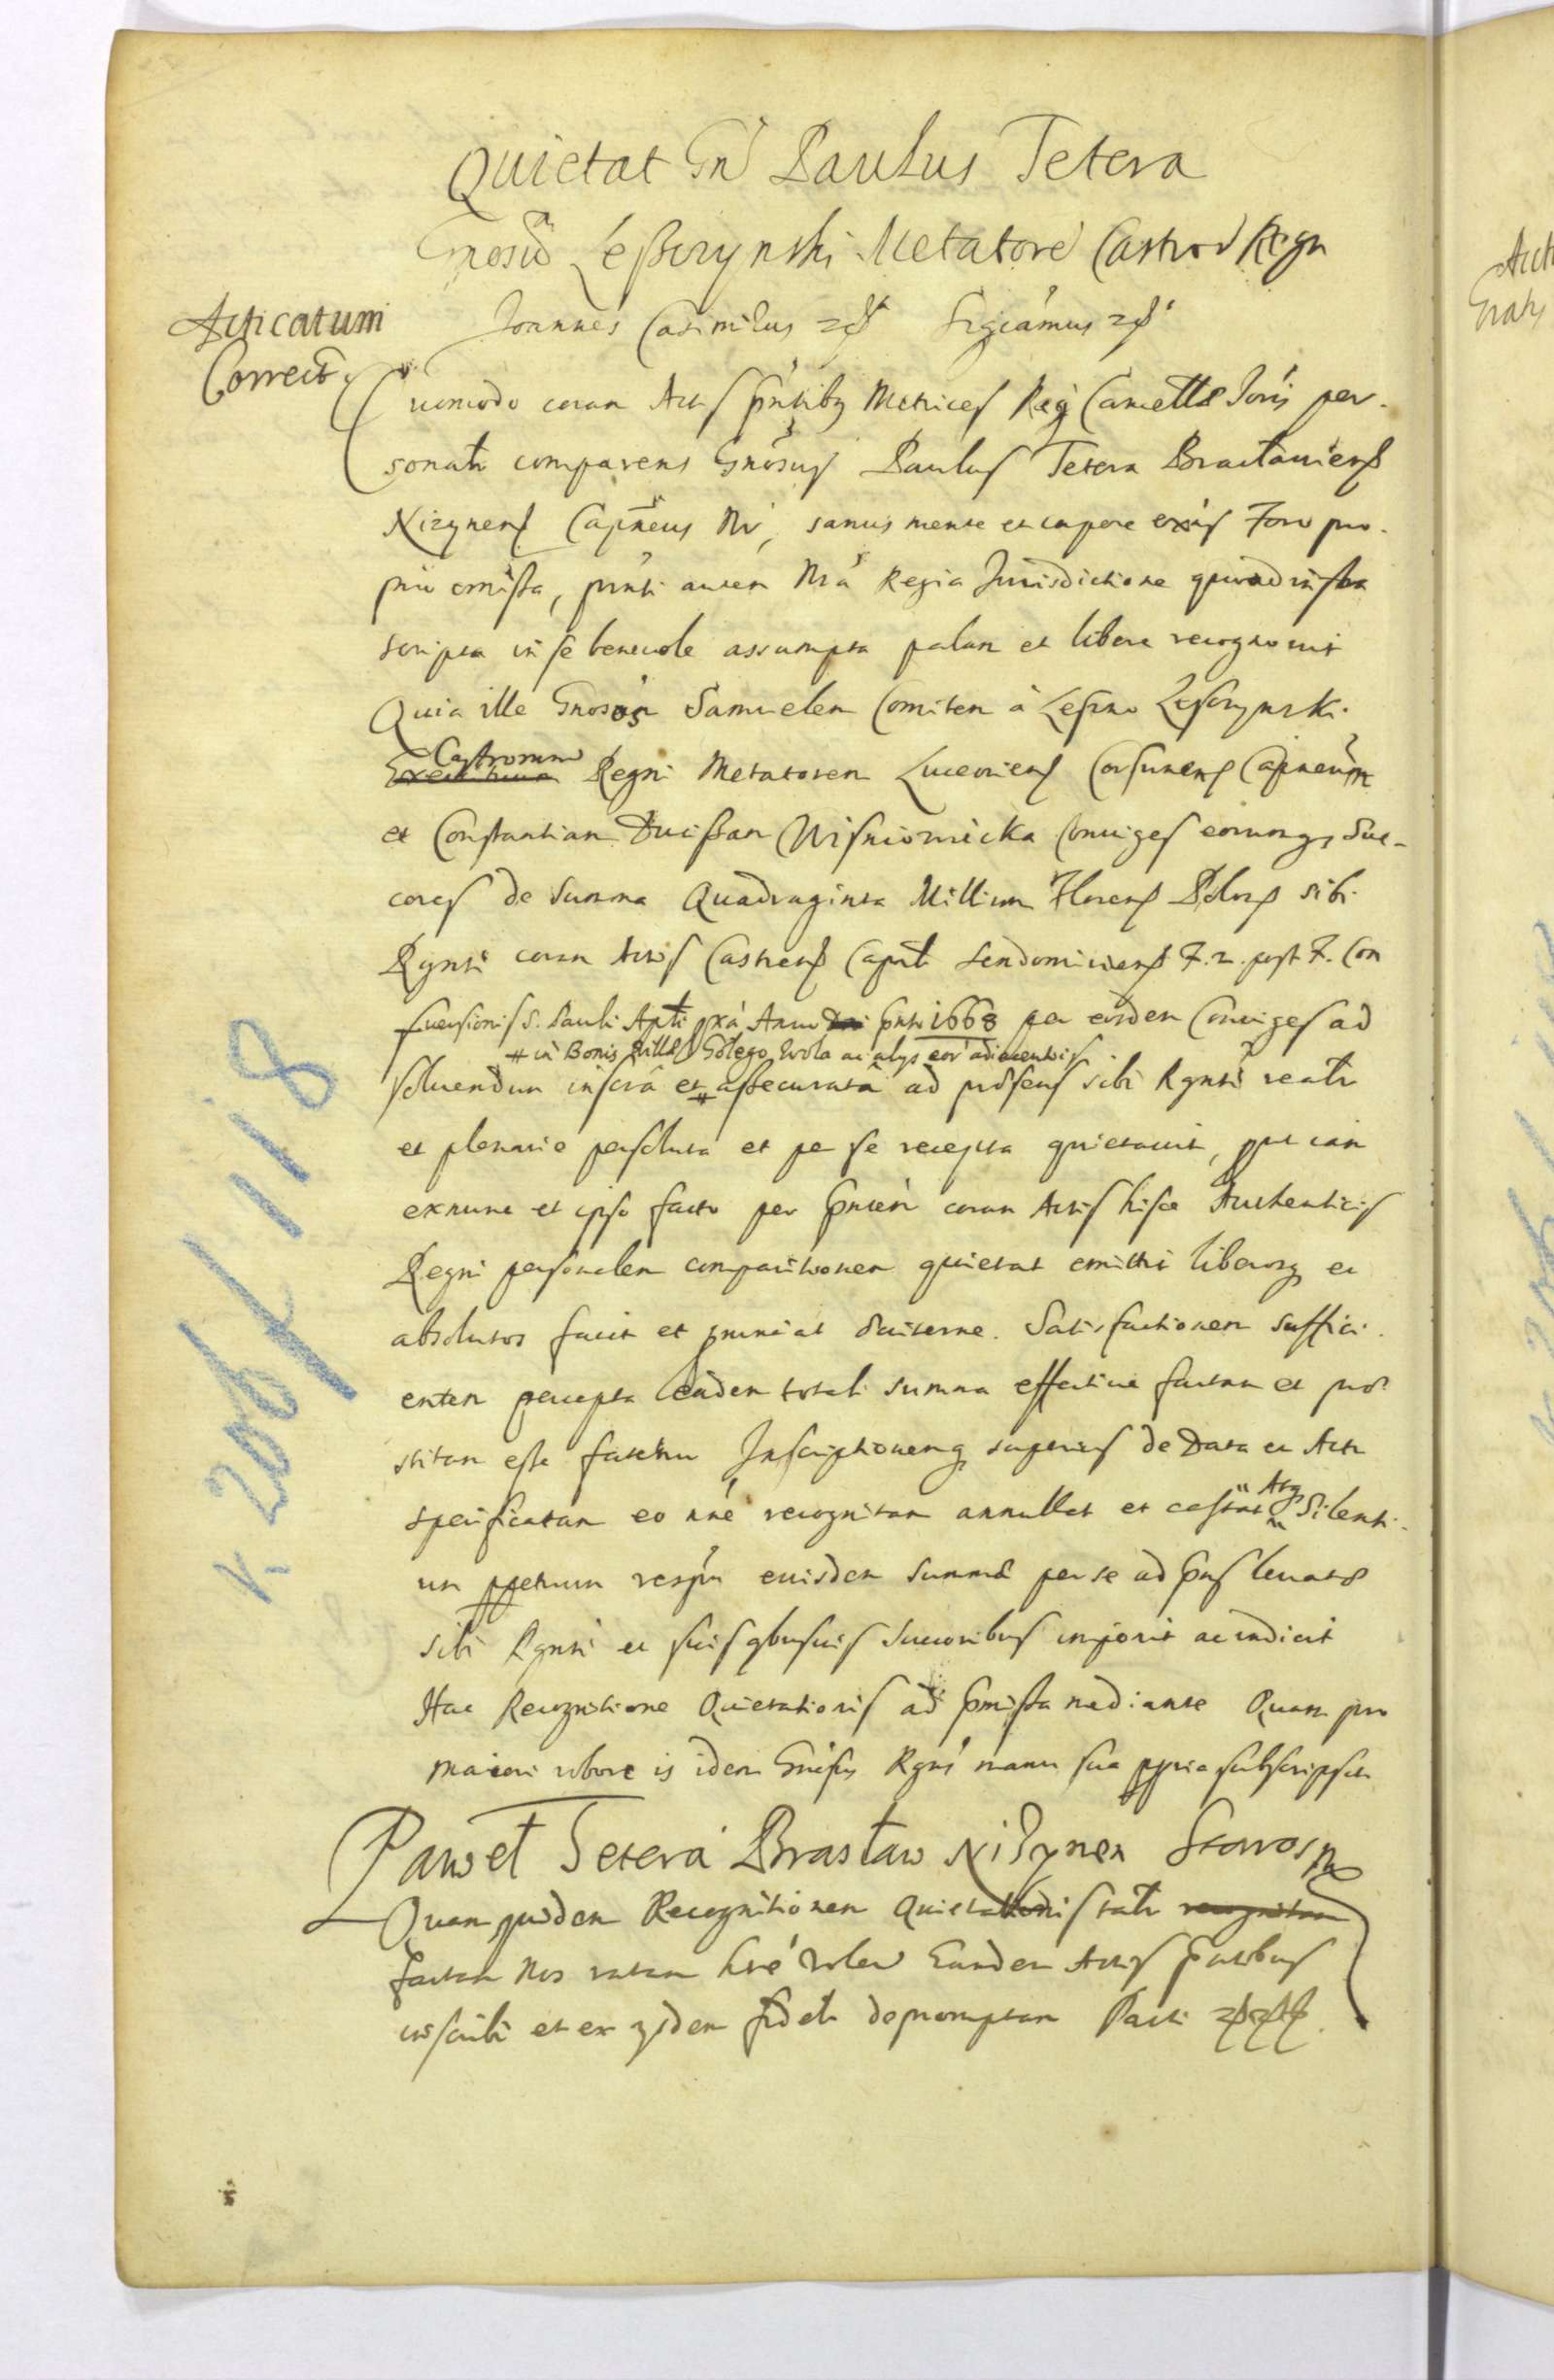 Quietat Gn̄ Paulus Tetera
Gnosū Leßczynski Metatorē Castror Regn
Acticatum
Correct
Joannes Casimirus Sigcamus
Quomodo coram Actis pntibq Metrices Reg Cancellae Joris per-
sonalr comparens Gnosus Paulus Tetera Braclauiens
Nizynens Capneus Nr, sanus mente et corpore exis Foro pro-
prio omisso, pnti autem Nrá Regia Jurisdictione quoad infra
scripta in se beneuole assumpta palam et libere recognouit
Quia ille Gnosos Samuelem Comitem à Leszno Leszczynski.
Castrorum Regni Metatorem Luceoriens Corsunens Capneum
et Constantiam Ducissam Wisniowiecka Coniuges eorumq Suc-
cores de Summa Quadraginta Millium Florens Polons sibi
Rgnti coram Actis Castrens Capitli Sendomiriens F. 2. post F. Con
uersionis S. Pauli Aptli pxá Anno pnti 1668 per eosdem Coniuges ad
# in Bonis Villae Golego Wola ac alys eor adiacentys
soluendum inscrâ et # assecuratâ ad praesens sibi Rgnti realr
et plenarie persoluta et per se recepta quietauit, put iam
exnunc et ipso facto per pntem coram Actis hisce Authenticis
Regni personalem comparitionem quietat emittit liberosq ec
absolutos facit et pnunciat duiterne. Satisfactionem suffici-
entem percepta eadem totali summa effectiue factam et prae
stitam esse fatetur Inscriptionemq superius de Data et Actu
specificatam eo nné recognitam annullat et cassat Atq Silenti-
um ppetuum respu eiusdem summae per se ad pns leuatae
sibi Rgnti ec suis qbusuis Succoribus imponit ac indicit
Hac Recognitione Quietationis ad pmissa mediante Quam pro
maiori robore is idem Gnosus Rgns manu sua ppria subscripsit
Paweł Tetera Brasław Niżynen Starosta
Quam quidem Recognitionem Quietationis talr
factam Nos ratam hré volen Eandem Actis pntibus
inscribi et ex ysdem fidelr depromptam Parti
K. 206/118